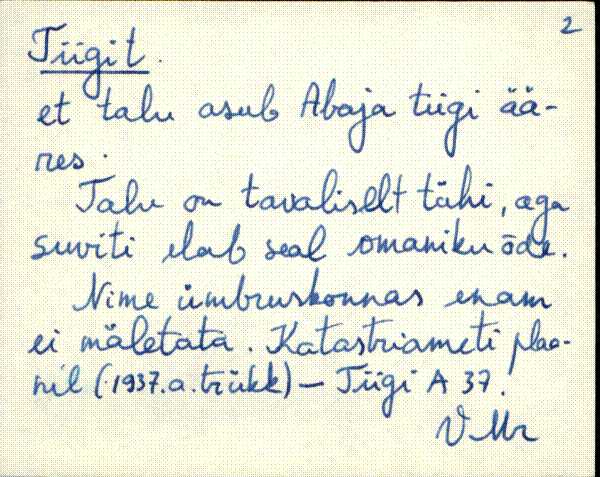 2
Tiigit.
et talu asub Abaja tiigi ää-
res.
Talu on tavaliselt tühi, aga
suviti elab seal omaniku õde.
Nime ümbruskonnas enam
ei mäletata. Katastriameti plaa-
nil (1937.a. trükk) – Tiigi A 37.
V. Mr